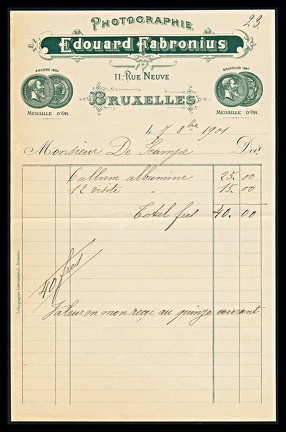 23.
PHOTOGRAPHIE
Edouard Fabronius
11, RUE NEUVE
BRUXELLES
ANVERS 1894
MÉDAILLE D'OR
BRUXELLES 1897
MÉDAILLE D'OR.
Le 7 8bre 1901
Monsieur De Kamps Doit
6 album albumine 25.00
12 visite " 15.00
Total frcs 40.00
40 frcs
Valeur en mon reçu au quinze courant